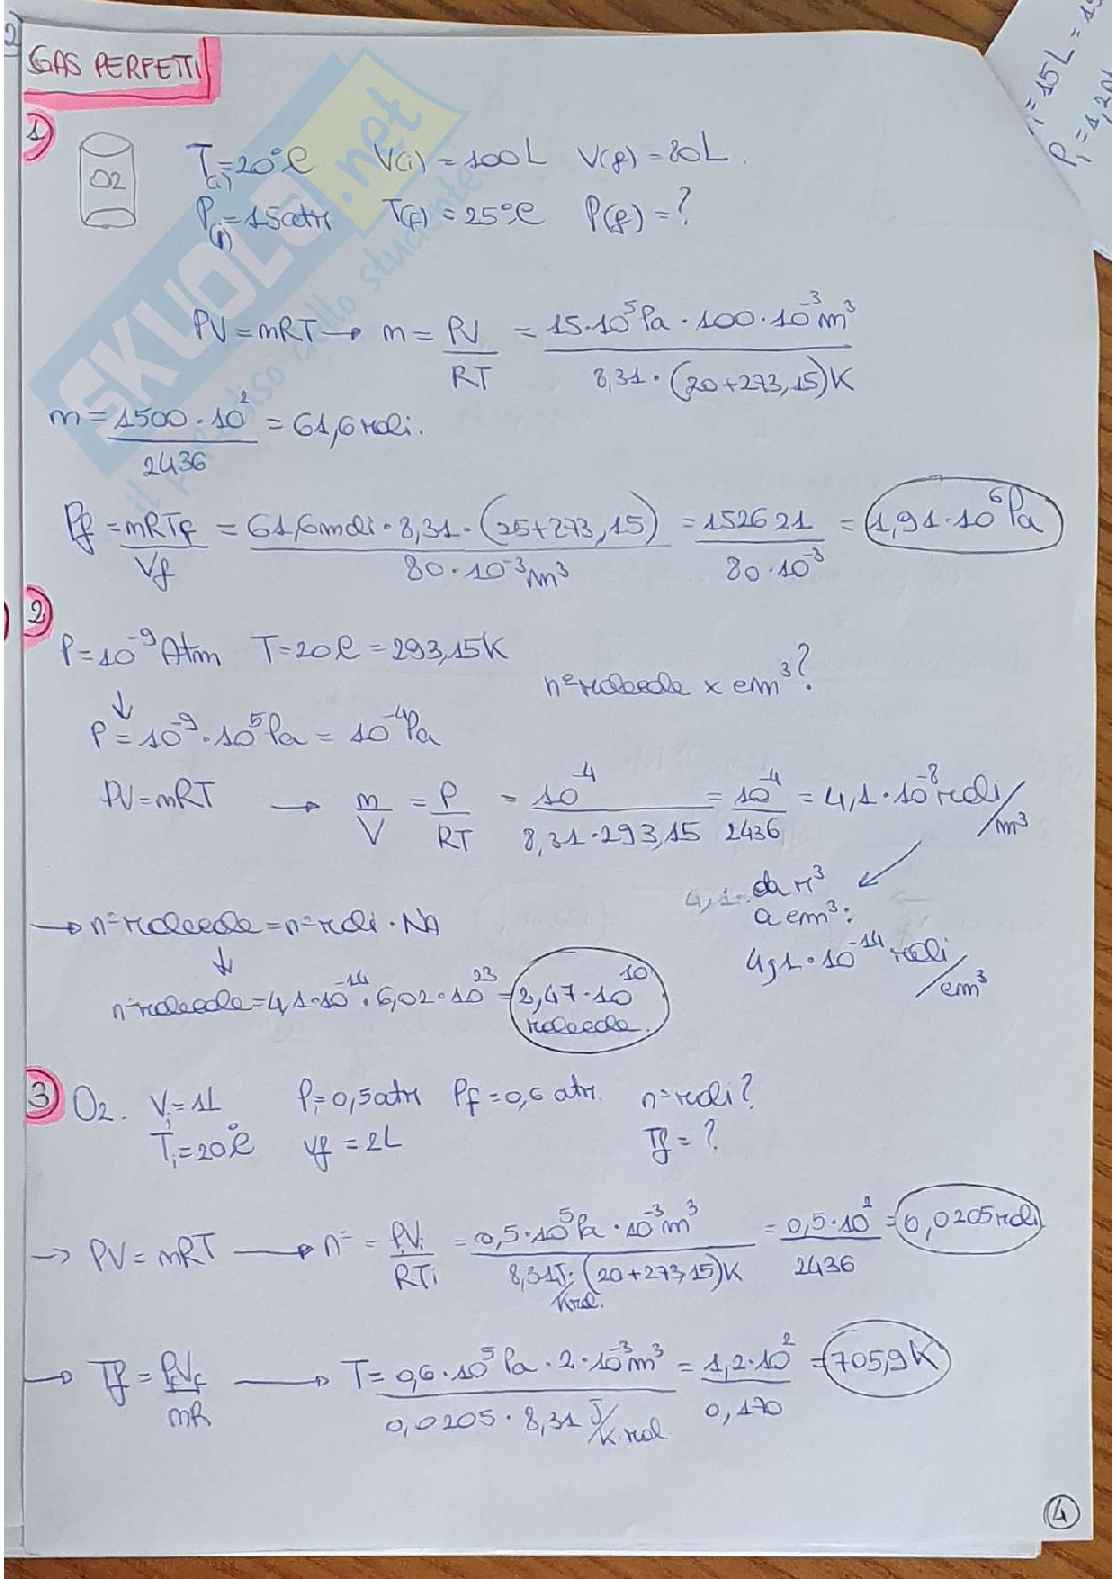 GAS PERFETTI
1)
O2
T(i)=20°C V(i)=100L V(f)=80L.
P(i)=15atm T(f)=25°C P(f)=?
PV=nRT → n = PV/RT = 15·10^5 Pa · 100·10^-3 m^3 / 8,31·(20+273,15)K
n = 1500·10^2 / 2436 = 61,6 moli.
Pf = nRTf/Vf = 61,6 moli·8,31·(25+273,15) / 80·10^-3 m^3 = 152621 / 80·10^-3 = 1,91·10^6 Pa
2)
P=10^-9 Atm T=20C=293,15K
n°molecole x cm^3?
↓
P=10^-9·10^5 Pa = 10^-4 Pa
PV=nRT → n/V = P/RT = 10^-4 / 8,31·293,15 = 10^-4 / 2436 = 4,1·10^-8 moli/m^3
da m^3
a cm^3:
4,1·10^-14 moli/cm^3
→ n°molecole = n°moli · NA
↓
n°molecole = 4,1·10^-14 · 6,02·10^23 = 2,47·10^10 molecole.
3) O2. Vi=1L Pi=0,5atm Pf=0,6 atm. n°moli?
Ti=20°C Vf=2L Tf=?
→ PV=nRT → n° = PiVi/RTi = 0,5·10^5 Pa · 10^-3 m^3 / 8,31 J/Kmol · (20+273,15)K = 0,5·10^2 / 2436 = 0,0205 moli
→ Tf = PfVf/nR → T = 0,6·10^5 Pa · 2·10^-3 m^3 / 0,0205 · 8,31 J/K mol = 1,2·10^2 / 0,170 = 705,9K
4
i=15L=15
Pi=1,201
SKUOLA.net
il paradiso dello studente